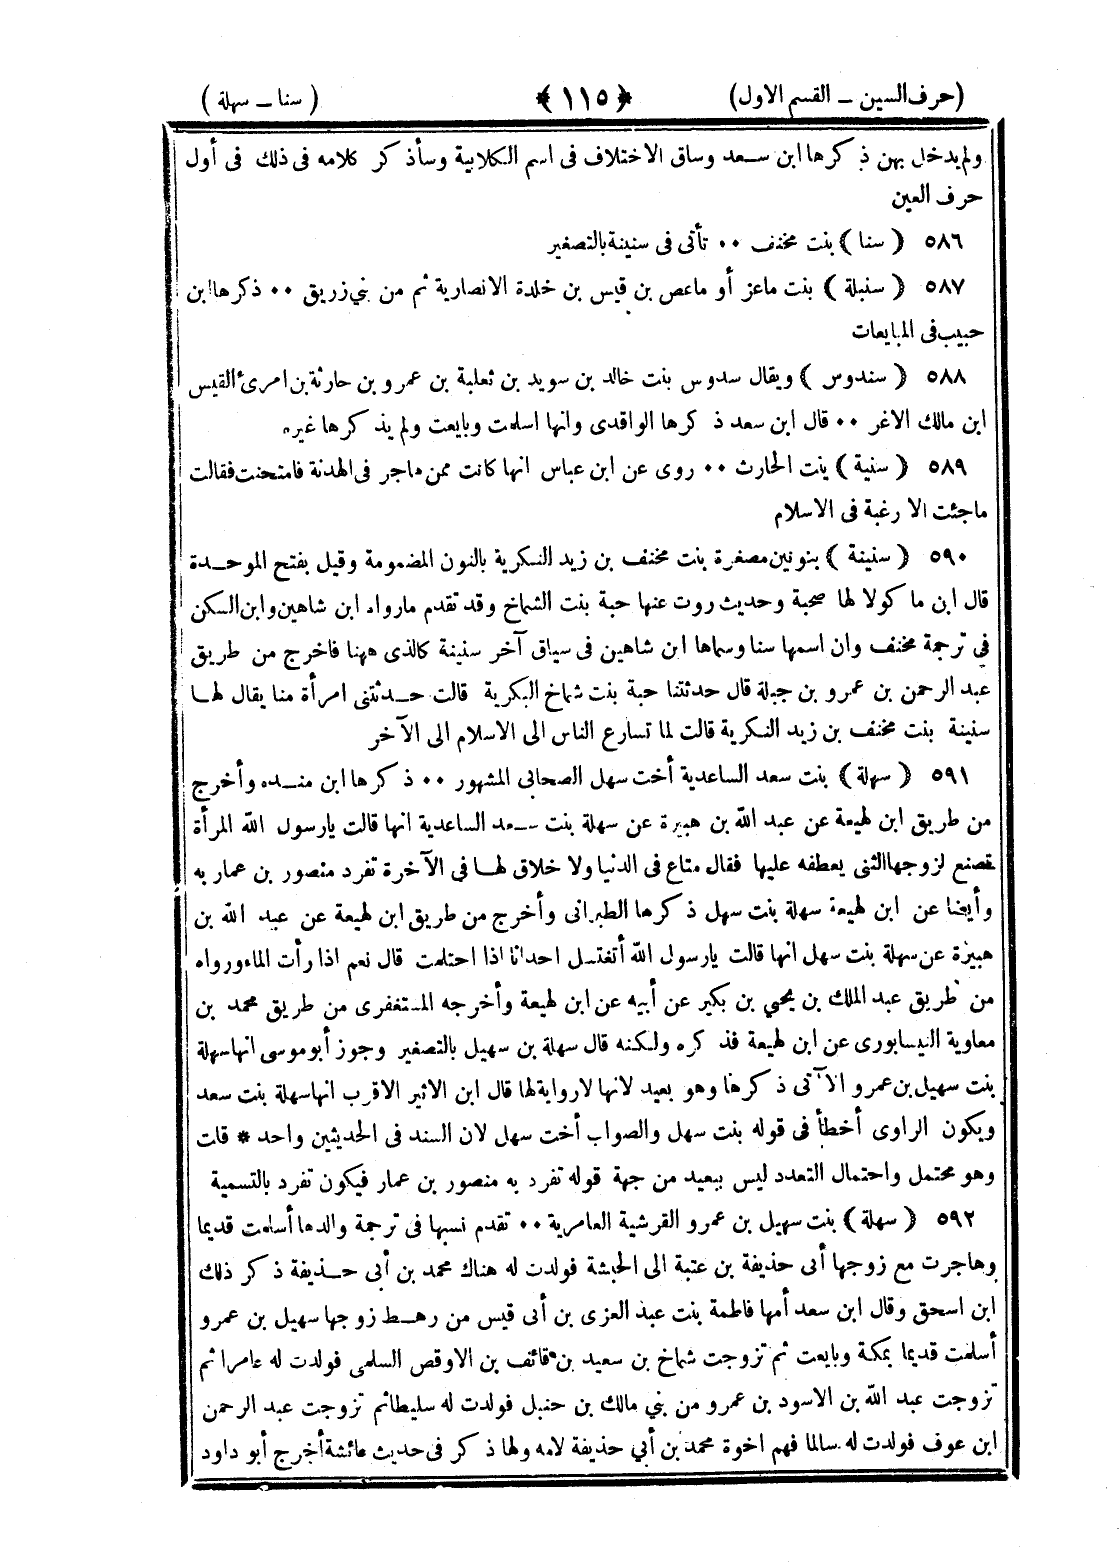 (حرف السين – القسم الاول)
﴿ ١١٥ ﴾
( سنا – سهلة )
ولم يدخل بهن ذكرها ابن سعد وساق الاختلاف فى اسم الكلابية وسأذكر كلامه فى ذلك فى أول
حرف العين
٥٨٦ ( سنا ) بنت مخنف ٠٠ تأتى فى سنينة بالتصغير
٥٨٧ ( سنبلة ) بنت ماعز أو ماعص بن قيس بن خلدة الانصارية ثم من بني زريق ٠٠ ذكرها ابن
حبيب فى المبايعات
٥٨٨ ( سندوس ) ويقال سدوس بنت خالد بن سويد بن ثعلبة بن عمرو بن حارثة بن امرئ القيس
ابن مالك الاغر ٠٠ قال ابن سعد ذكرها الواقدى وانها اسلمت وبايعت ولم يذكرها غيره
٥٨٩ ( سنية ) بنت الحارث ٠٠ روى عن ابن عباس انها كانت ممن هاجر فى الهدنة فامتحنت فقالت
ماجئت الا رغبة فى الاسلام
٥٩٠ ( سنينة ) بنونين مصغرة بنت مخنف بن زيد النكرية بالنون المضمومة وقيل بفتح الموحدة
قال ابن ماكولا لها صحبة وحديث روت عنها حبة بنت الشماخ وقد تقدم مارواه ابن شاهين وابن السكن
في ترجمة مخنف وان اسمها سنا وسماها ابن شاهين فى سياق آخر سنينة كالذى ههنا فاخرج من طريق
عبد الرحمن بن عمرو بن جبلة قال حدثتنا حبة بنت شماخ البكرية قالت حدثتنى امرأة منا يقال لها
سنينة بنت مخنف بن زيد النكرية قالت لما تسارع الناس الى الاسلام الى الآخر
٥٩١ ( سهلة ) بنت سعد الساعدية أخت سهل الصحابي المشهور ٠٠ ذكرها ابن منده وأخرج
من طريق ابن لهيعة عن عبد الله بن هبيرة عن سهلة بنت سعد الساعدية انها قالت يارسول الله المرأة
تصنع لزوجها الشئ يعطفه عليها فقال متاع فى الدنيا ولا خلاق لها فى الآخرة تفرد منصور بن عمار به
وأيضا عن ابن لهيعة سهلة بنت سهل ذكرها الطبرانى وأخرج من طريق ابن لهيعة عن عبد الله بن
هبيرة عن سهلة بنت سهل انها قالت يارسول الله أتغتسل احدانا اذا احتلمت قال نعم اذا رأت الماء ورواه
من طريق عبد الملك بن يحيي بن بكير عن أبيه عن ابن لهيعة وأخرجه المستغفرى من طريق محمد بن
معاوية النيسابورى عن ابن لهيعة فذكره ولكنه قال سهلة بن سهيل بالتصغير وجوز أبو موسى انها سهلة
بنت سهيل بن عمرو الآتى ذكرها وهو بعيد لانها لارواية لها قال ابن الاثير الاقرب انها سهلة بنت سعد
ويكون الراوى أخطأ فى قوله بنت سهل والصواب أخت سهل لان السند فى الحديثين واحد * قلت
وهو محتمل واحتمال التعدد ليس ببعيد من جهة قوله تفرد به منصور بن عمار فيكون تفرد بالتسمية
٥٩٢ ( سهلة ) بنت سهيل بن عمرو القرشية العامرية ٠٠ تقدم نسبها فى ترجمة والدها أسلمت قديما
وهاجرت مع زوجها أبى حذيفة بن عتبة الى الحبشة فولدت له هناك محمد بن أبي حذيفة ذكر ذلك
ابن اسحق وقال ابن سعد أمها فاطمة بنت عبد العزى بن أبى قيس من رهط زوجها سهيل بن عمرو
أسلمت قديما بمكة وبايعت ثم تزوجت شماخ بن سعيد بن قائف بن الاوقص السلمى فولدت له عامرا ثم
تزوجت عبد الله بن الاسود بن عمرو من بني مالك بن حنبل فولدت له سليطا ثم تزوجت عبد الرحمن
ابن عوف فولدت له سالما فهم اخوة محمد بن أبي حذيفة لامه ولها ذكر فى حديث عائشة أخرج أبو داود